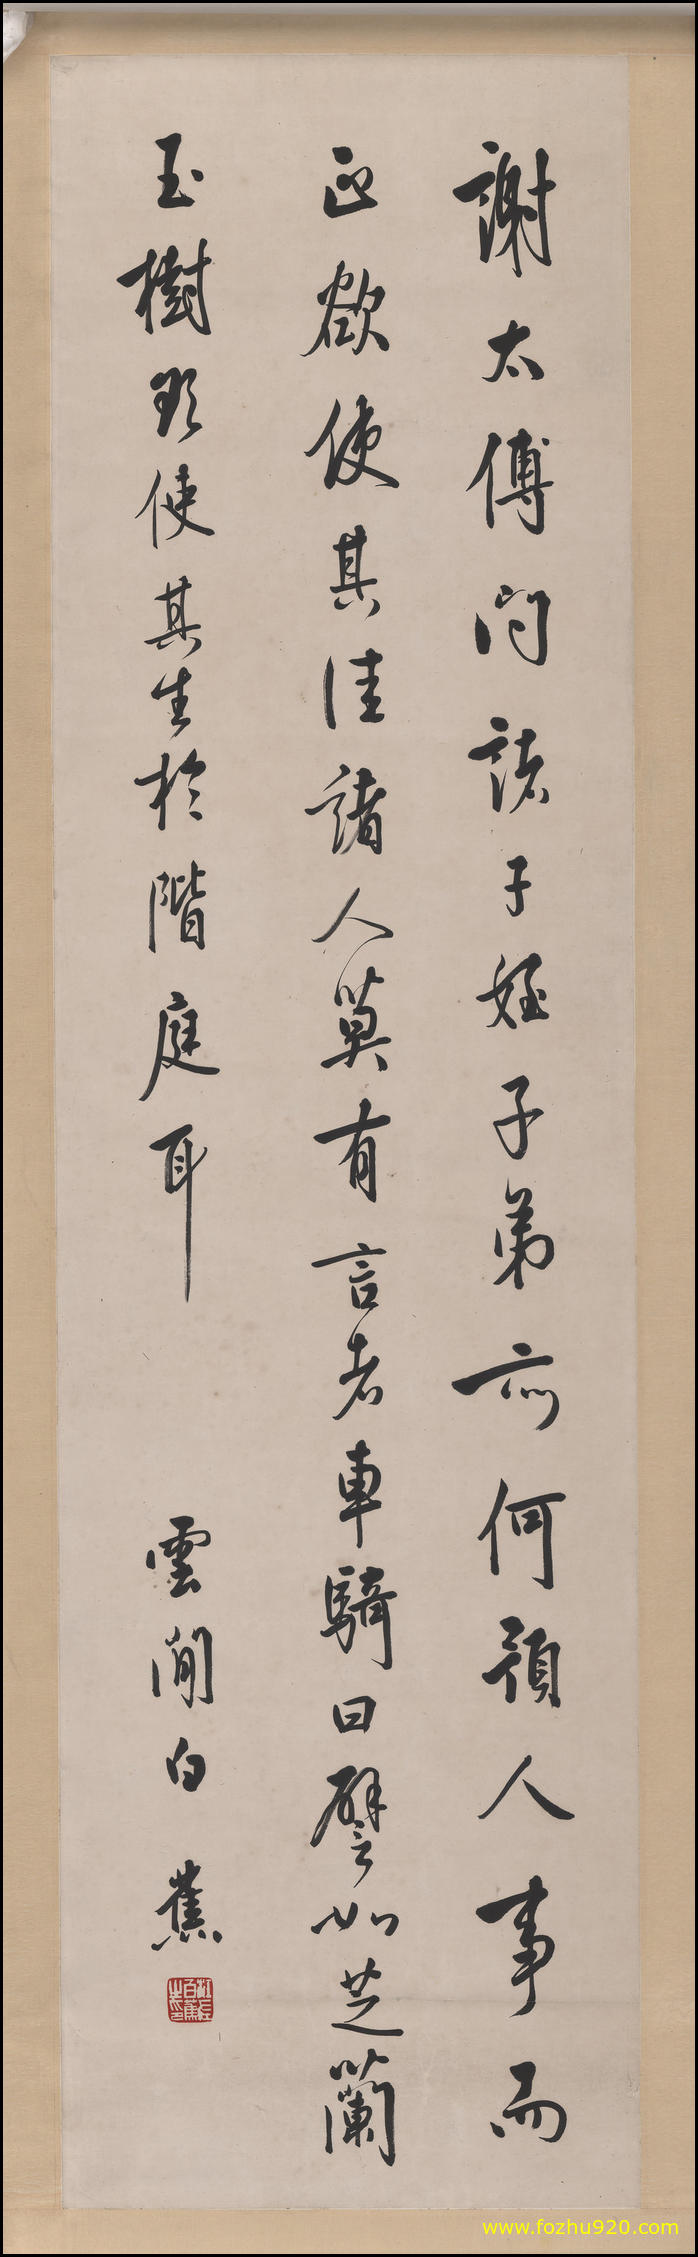 謝太傅問諸子姪子弟亦何預人事而
正欲使其佳諸人莫有言者車騎曰譬如芝蘭
玉樹欲使其生於階庭耳
雲間白蕉
www.fozhu920.com